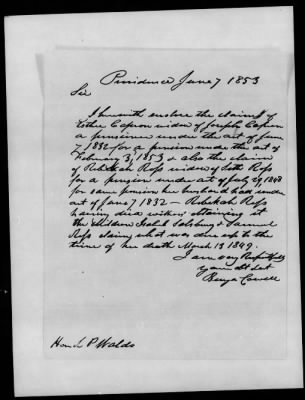 Providence June 7 1853
Sir
I herewith enclose the claim of
Esther Capron widow of Joseph Capron
a pensioner under the act of June
7, 1832 for a pension under the act of
February 3, 1853 & also the claim
of Rebekah Ross widow of Ross
for a pension under act of July 29, 1848
for same pension her husband had under
act of June 7 1832 – Rebekah Ross
having died without obtaining it
the children Salsbury & Samuel
Ross claim what was due up to the
time of her death March 13 1849.
I am very Respectfully
your obt Svt
Benja Cowell
Hon L P Waldo